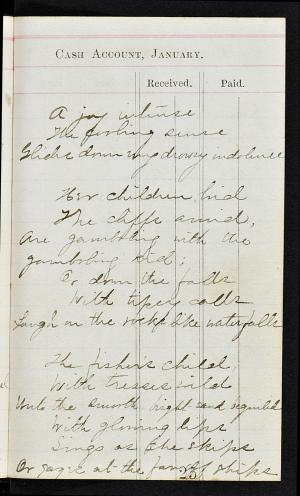 CASH ACCOUNT, JANUARY.
Received. Paid.
A joy intense
The feeling sense
Glides down my drowsy indolence
Her children, hid
The cliffs amid,
Are gambolling with the
gambolling kid;
Or down the falls
With tipsy calls
Laugh on the rocks like waterfalls
The fisher's child,
With tresses wild
Unto the smooth, bright sand beguiled
With glowing lips
Sings as she skips
Or gazes at the far off ships